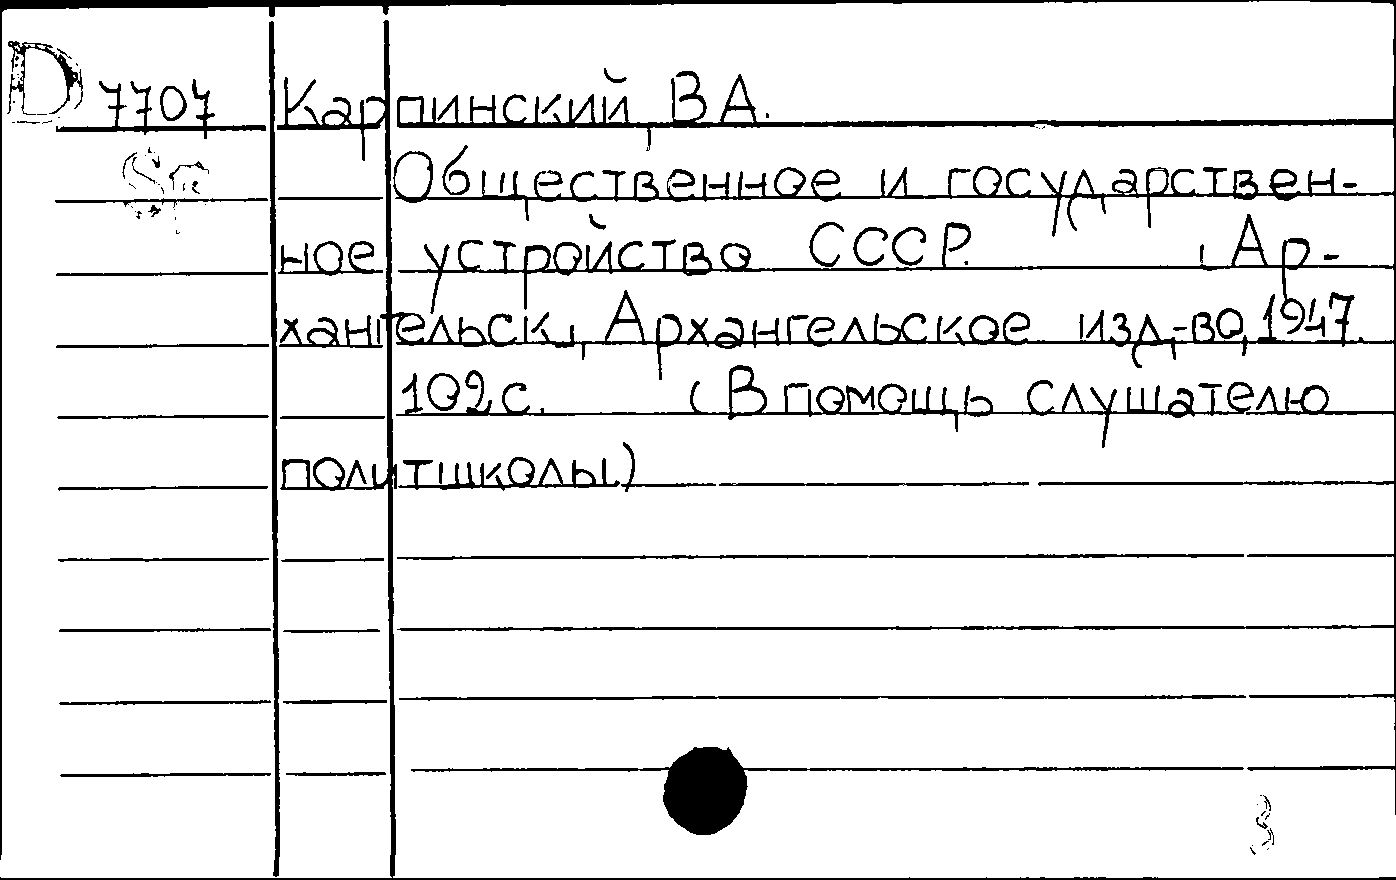 D 7707 Карпинский, В А.
Sr Общественное и государствен-
ное устройство СССР. [Ар-
хангельск], Архангельское изд,-во, 1947.
102 с. (В помощь слушателю
политшколы.)
3